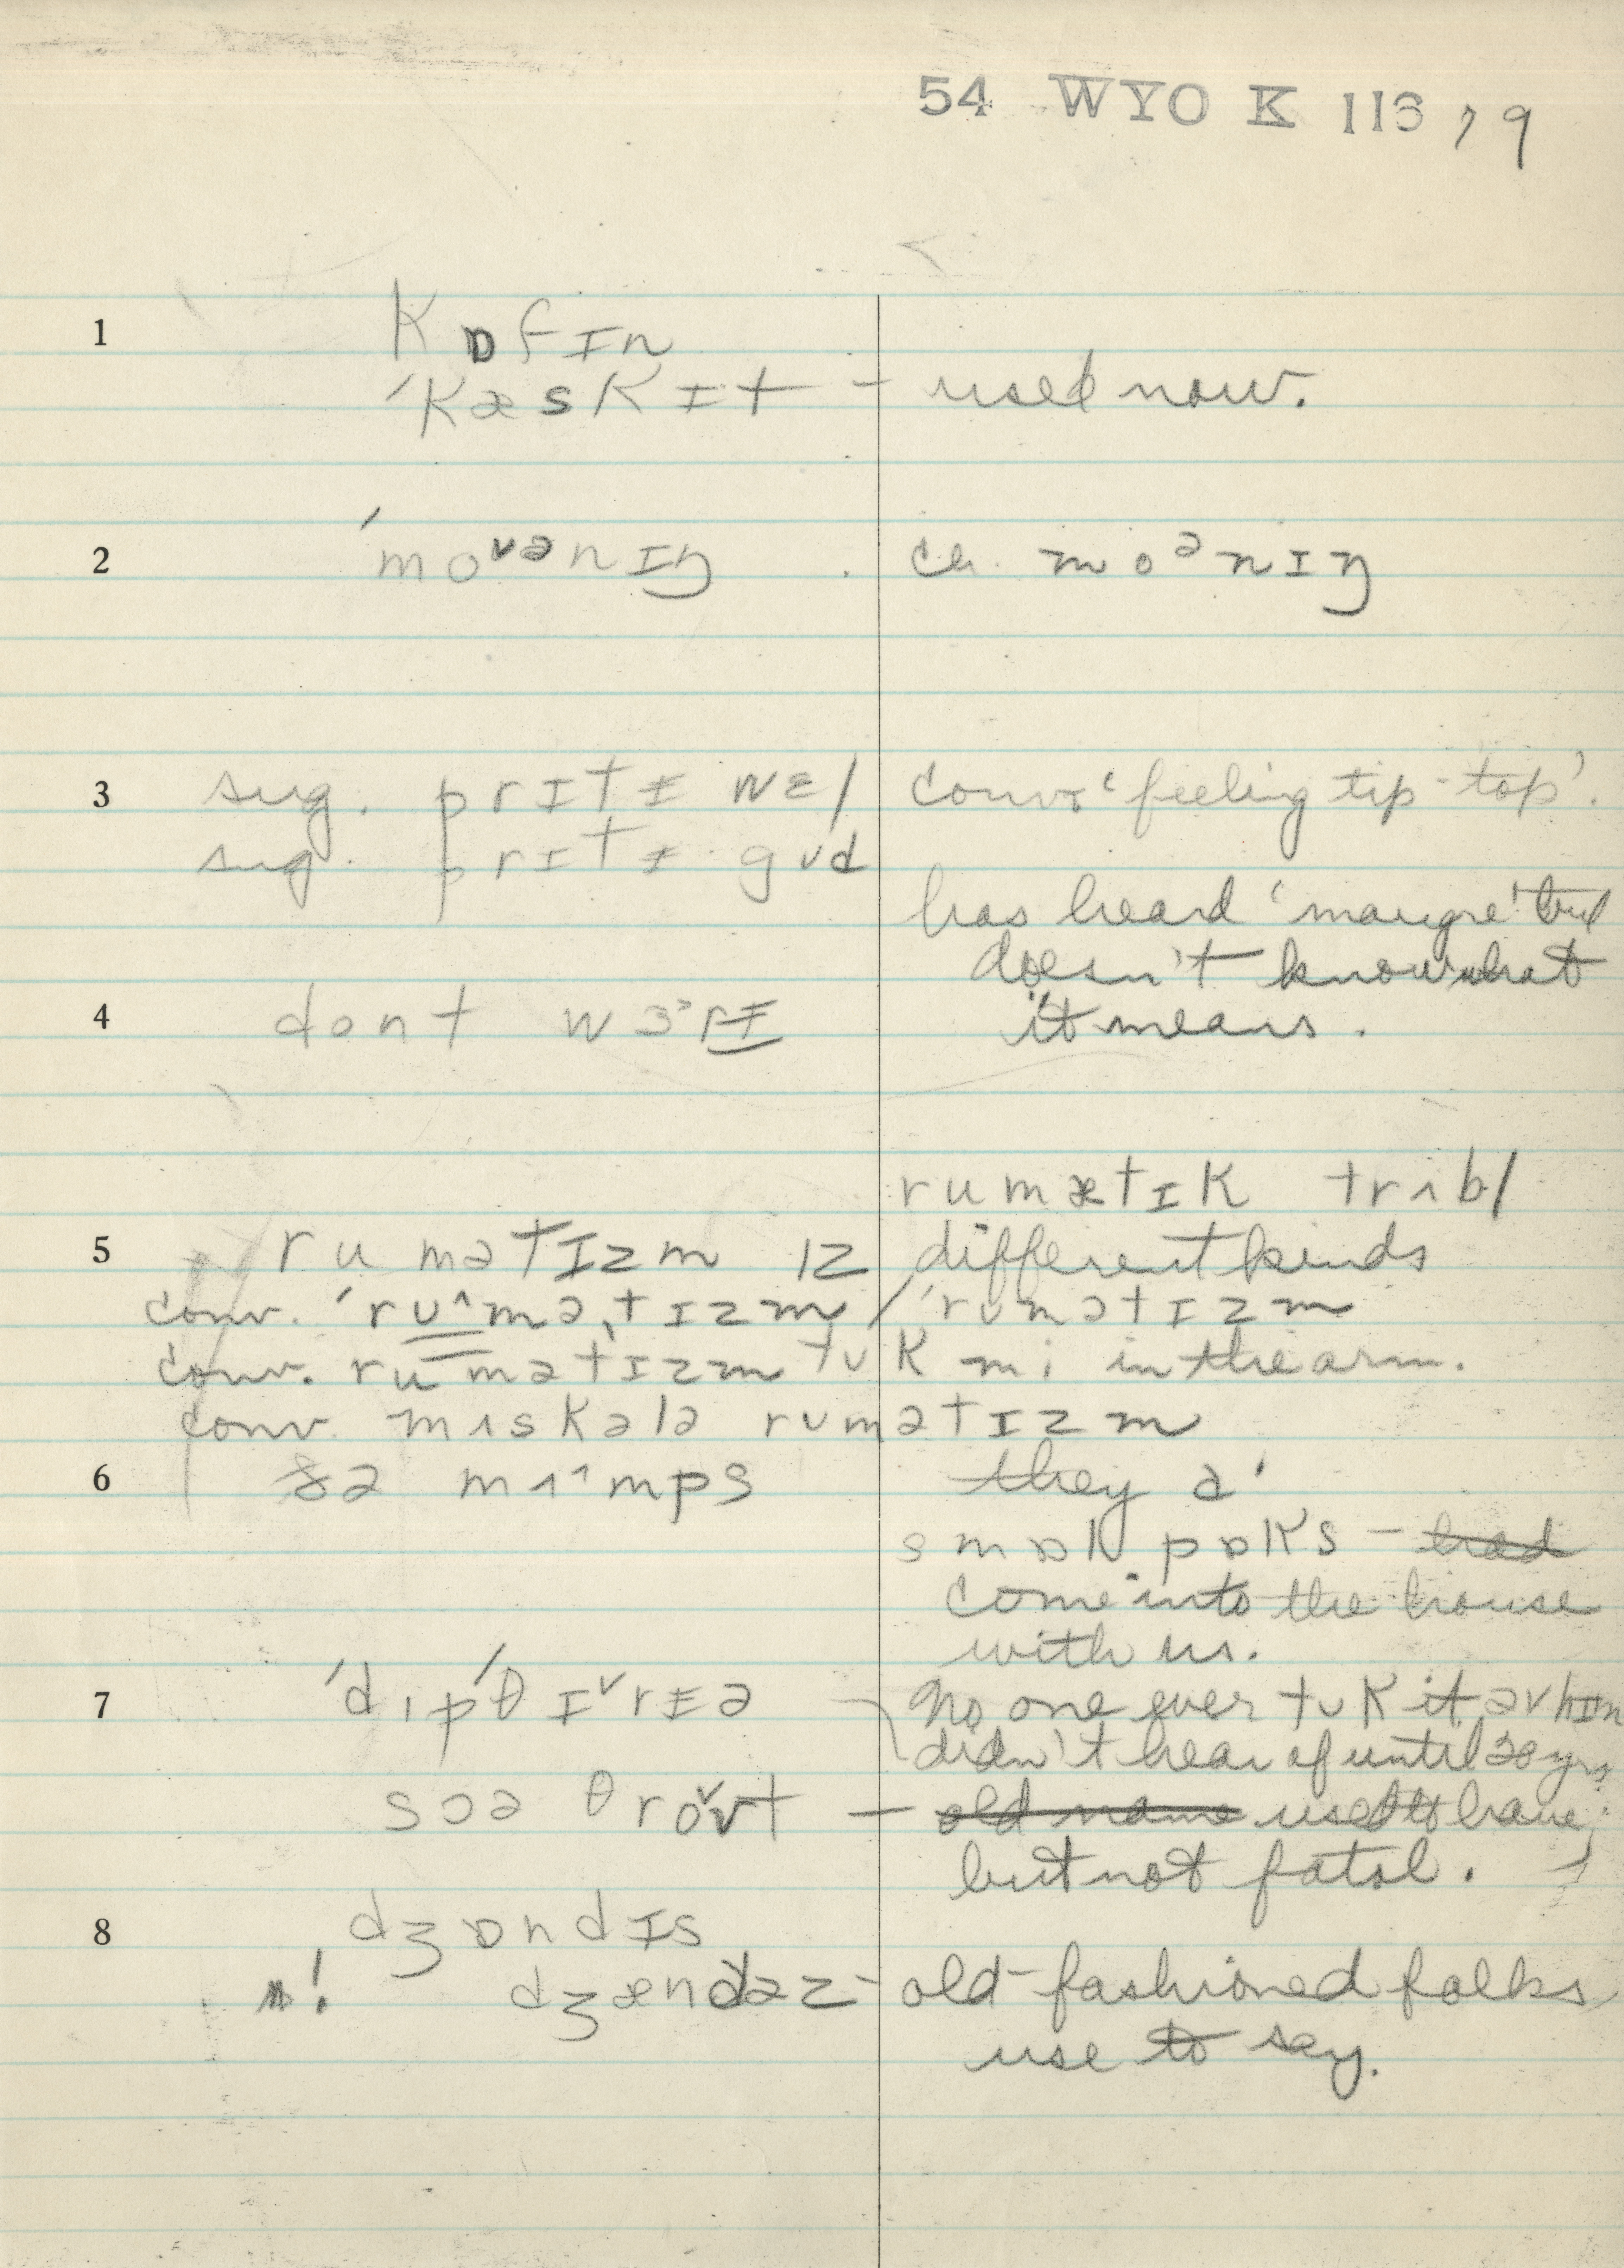 54 WYO K 113, 79
1 kɒfɪn
ˈkæskɪt – used now.
2 ˈmoᵛᵊnɪŋ . cr. moᵊnɪŋ
3 sug. prɪtɨ wɛl conv. 'feeling tip-top'.
sug. prɪtɨ gʊd
has heard 'maugre' but
doesn't know what
4 dont wɜˑrɨ it means.
rumætɪk trʌbl
5 rumətɪzm ɪz different kinds
conv. ˈruˆməˌtɪzm / ˈrumətɪzm
conv. rumətɪzm tʊk mi in the arm.
conv. mʌskələ rumətɪzm
6 ðə mʌˆmps they a'
smɒl pɒks – had
come into the house
with us.
7 ˈdɪpˈθɪˇrɨə No one ever tʊk it əv hɪm
didn't hear of until 20 yrs.
sɔə θroˇʊt – old name used to have
but not fatal.
8 dʒɒndɪs
! dʒændəz – old-fashioned folks
use to say.